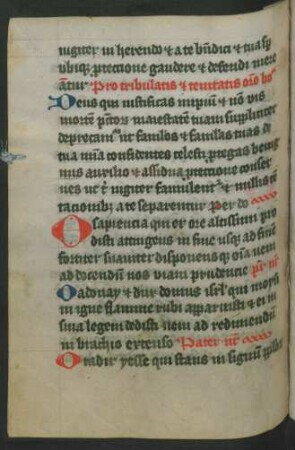 iugiter in herendo & a te bn̄dici & tua sp̄
ubiqꝫ ꝓtectione gaudere & defendi mere
āntur Pro tribulatis & tentatis oro
Deus qui iustificas impiū & nō vis
mortē pctoꝝ maiestatē tuam suppliciter
deprecam̄ ut famulos & famulas tuas de
tua mīa confidentes celesti ꝓtegas benig
nus auxilio & assidua ꝓtectione conser
ues ut t iugiter famulent & nullis tē
tacionibꝫ a te separentur Per do
O sapiencia qui ex ore altissimi pro
disti attingens in fine usqꝫ ad finem
fortiter suauiter disponens qꝫ oīa veni
ad docendū nos viam prudencie
O adonay & dux domus isrl qui moysi
in igne flamme rubi apparuisti & ei in
sina legem dedisti veni ad redimendū
in brachio extenso Pater nr
O radix yesse qui stans in signū